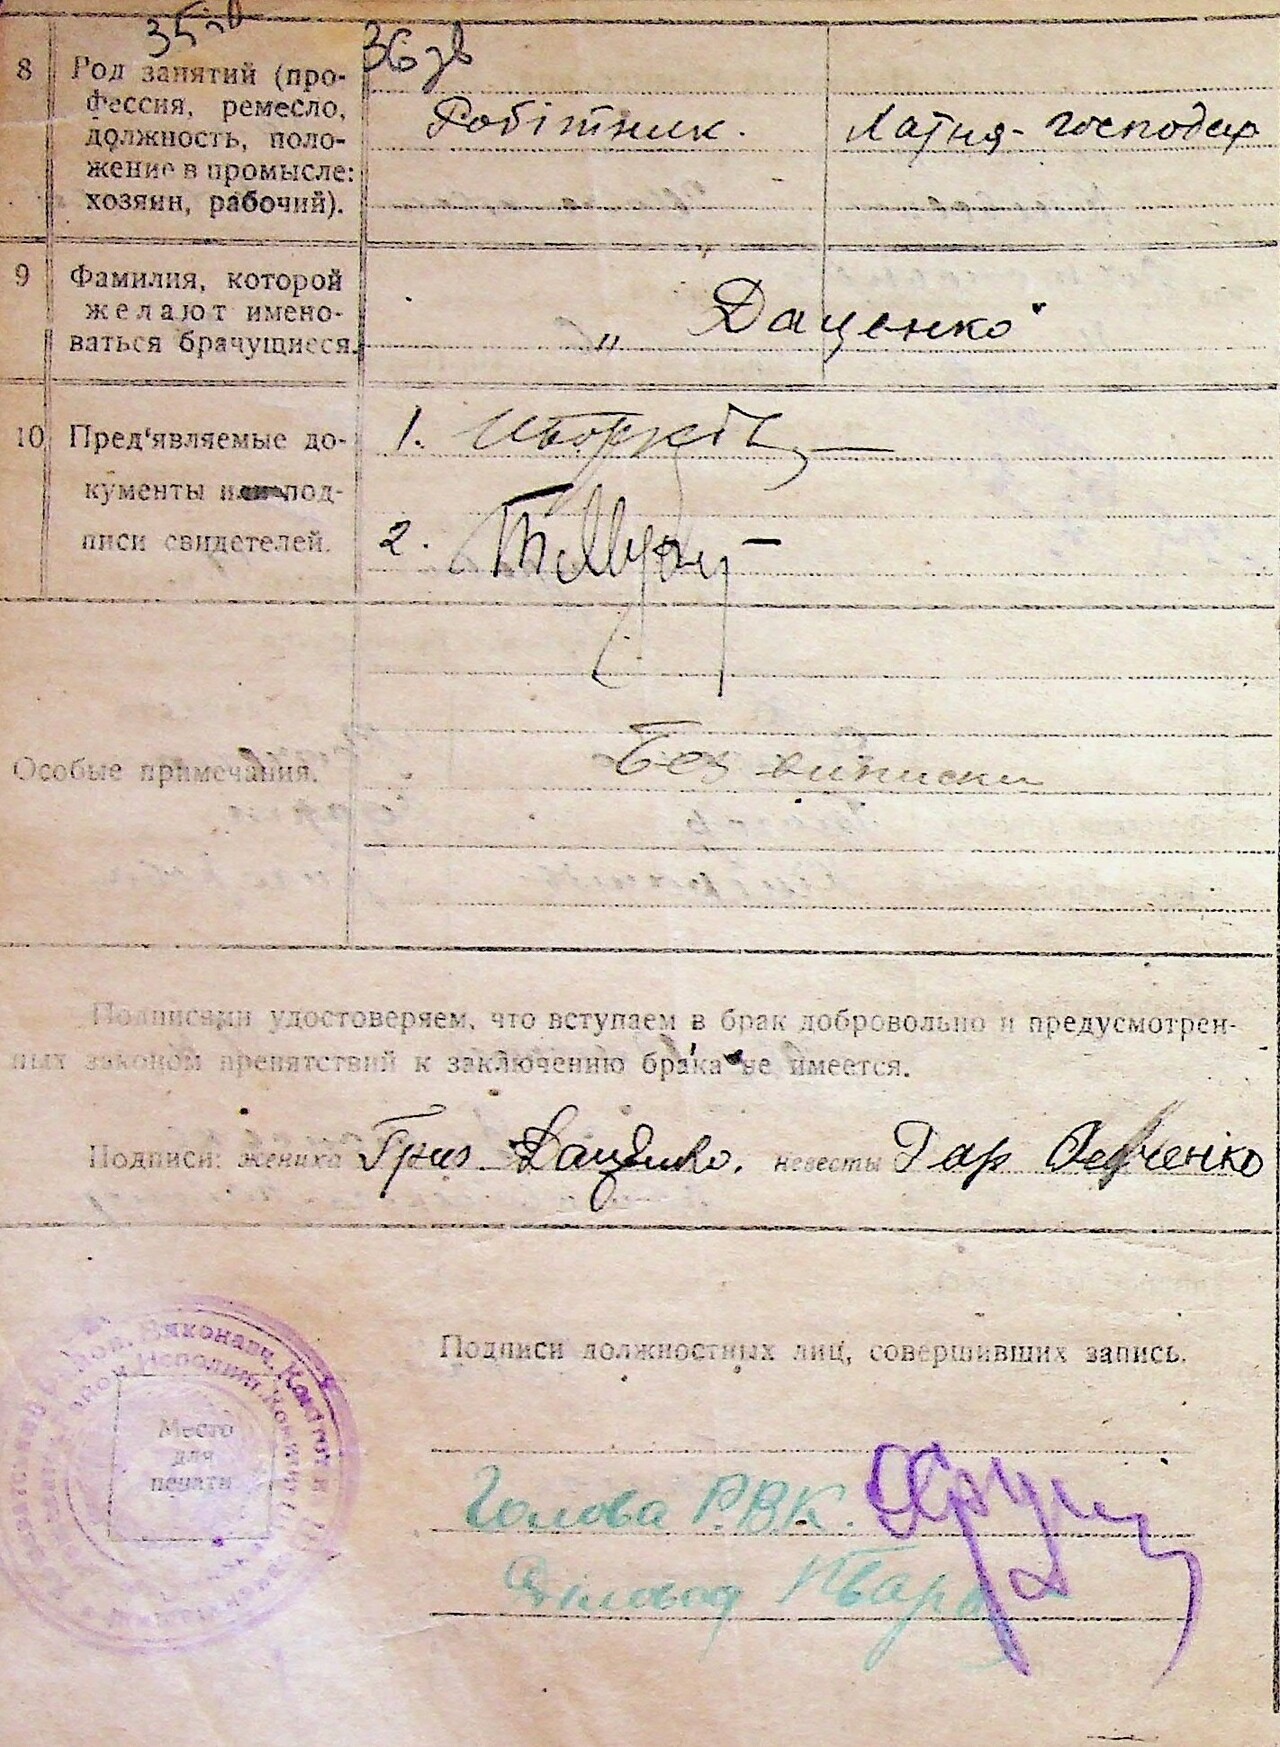 8 Род занятий (про-
фессия, ремесло,
должность, поло-
жение в промысле:
хозяин, рабочий).
Робітник.
Хатня-господар
9 Фамилия, которой
желают имено-
ваться брачущиеся.
„ Даценко"
10 Пред'являемые до-
кументы или под-
писи свидетелей.
1.
2.
Особые примечания.
Без виписки
Подписями удостоверяем, что вступаем в брак добровольно и предусмотрен-
ных законом препятствий к заключению брака не имеется.
Подписи: жениха Гриз Даценко. невесты Гар Левченко
Подписи должностных лиц, совершивших запись.
Место
для
печати
Голова Р.В.К.
Діловод